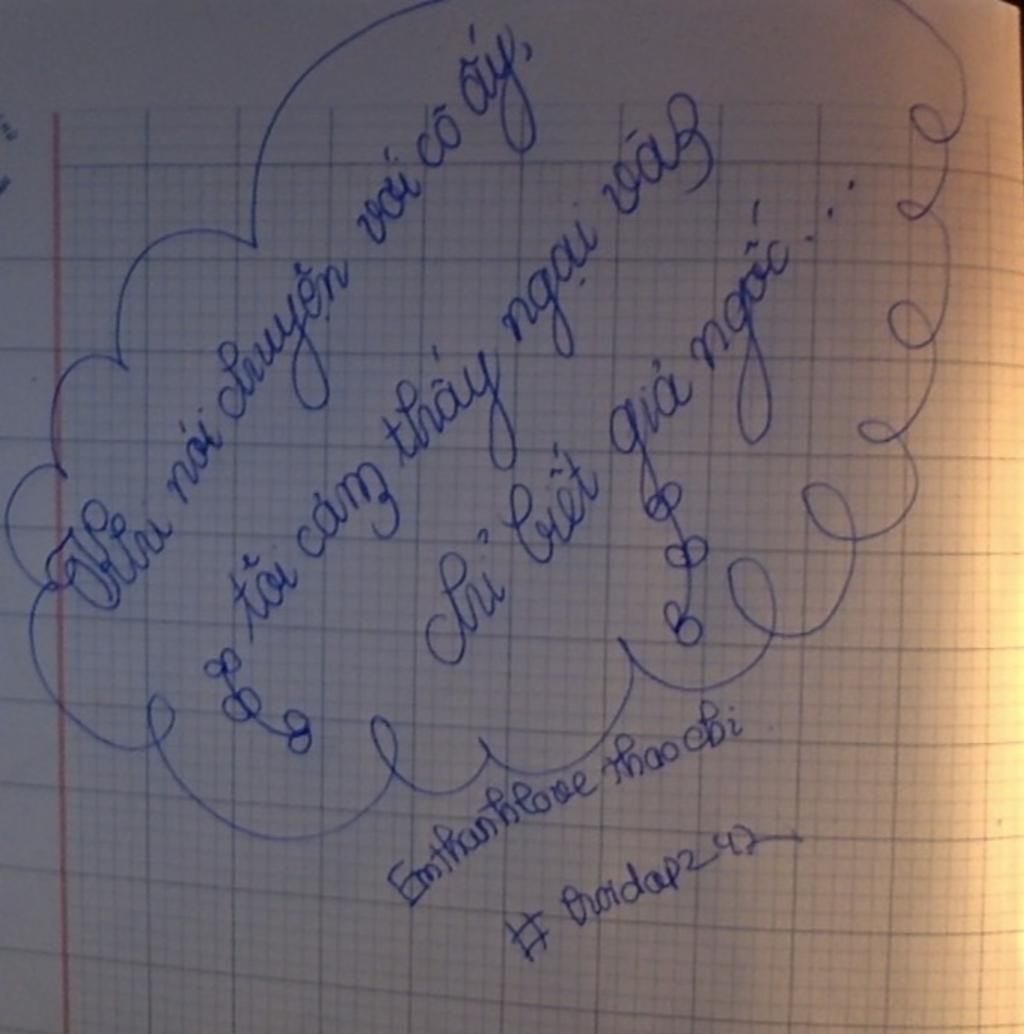 Khi nói chuyện với cô ấy,
tôi cảm thấy ngại và
chỉ biết giả ngốc...
Emthanhlove thaochi
# hoidap247